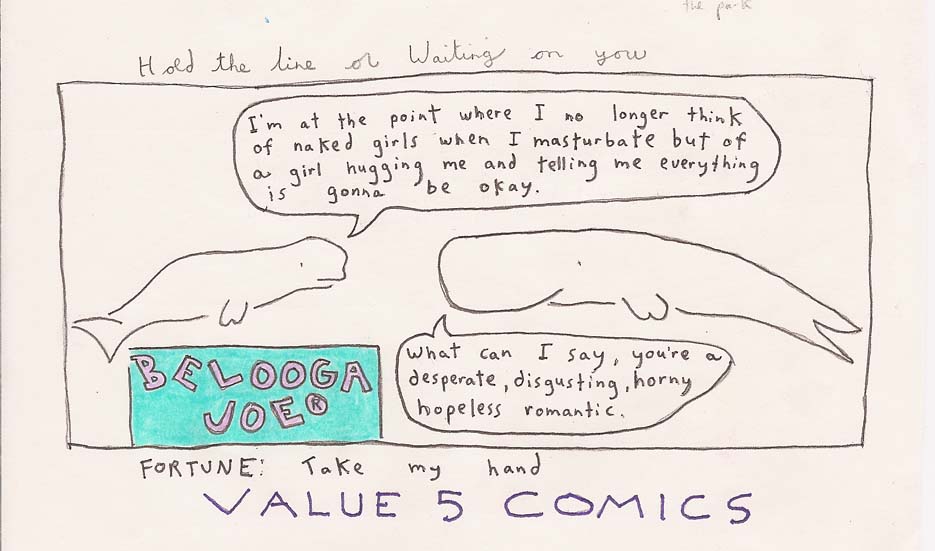 the park
Hold the line or Waiting on you
I'm at the point where I no longer think
of naked girls when I masturbate but of
a girl hugging me and telling me everything
is gonna be okay.
What can I say, you're a
desperate, disgusting, horny
hopeless romantic.
BELOOGA
JOE®
FORTUNE: Take my hand
VALUE 5 COMICS